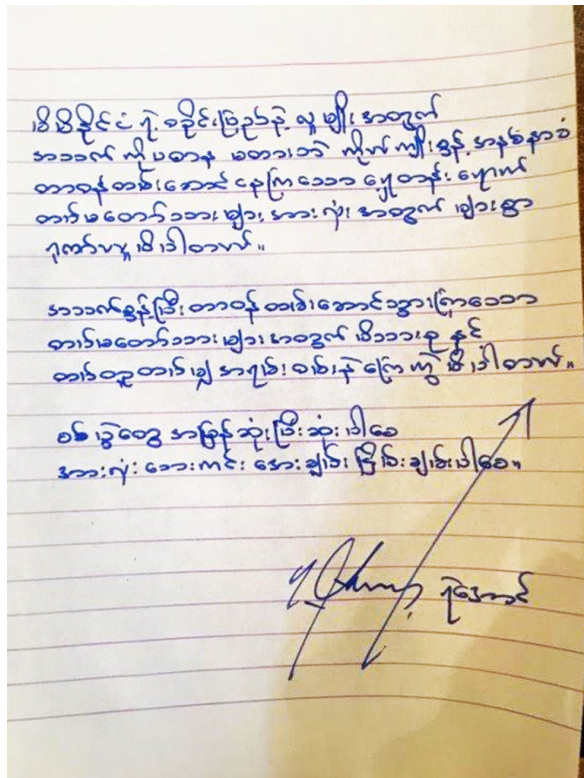 မိမိနိုင်ငံ ရဲ့ စခိုင်းမြဉ်ခံနဲ့ လူမျိုး အတွက်
အသက် ကို ပဓာန မထားဘဲ ကိုယ်ကျိုးစွန့် အနစ်နာခံ
တာဝန်ထမ်းဆောင်နေကြသော ရှေ့တန်း ရောက်
တပ်မတော်သားများ အားလုံး အတွက် များစွာ
ဂုဏ်ယူ မိပါတယ်။
အသက်စွန့်ပြီး တာဝန်ထမ်းဆောင်သွားကြသော
တပ်မတော်သားများ အတွက် မိသားစု နှင့်
ထပ်တူထပ်မျှ အရမ်းဝမ်းနဲကြေကွဲ မိပါတယ်။
စစ်ပွဲတွေ အမြန်ဆုံးပြီးဆုံးပါစေ
အားလုံး ဘေးကင်း အေးချမ်း ငြိမ်းချမ်းပါစေ။
ရဲအောင်